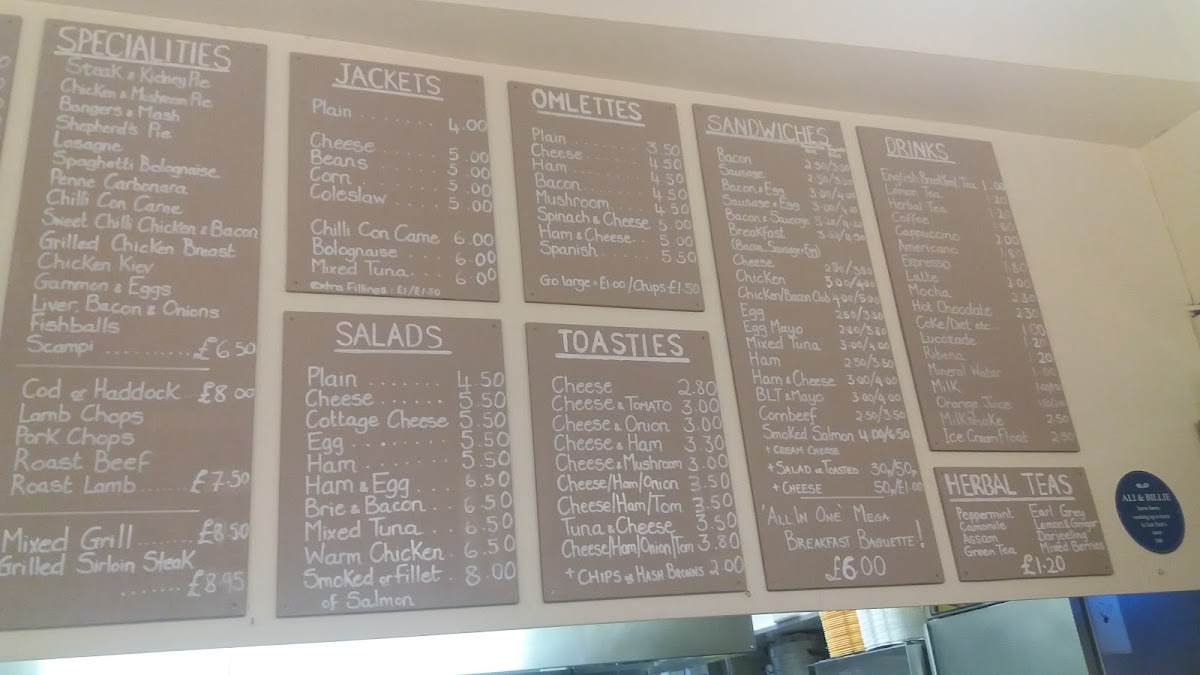 SPECIALITIES
Steak & Kidney Pie
Chicken & Mushroom Pie
Bangers & Mash
Shepherd's Pie
Lasagne
Spaghetti Bolognaise
Penne Carbonara
Chilli Con Carne
Sweet Chilli Chicken & Bacon
Grilled Chicken Breast
Chicken Kiev
Gammon & Eggs
Liver, Bacon & Onions
Fishballs
Scampi .......... £6.50
Cod or Haddock £8.00
Lamb Chops
Pork Chops
Roast Beef
Roast Lamb ...... £7.50
Mixed Grill ...... £8.50
Grilled Sirloin Steak
....... £8.95
JACKETS
Plain ........ 4.00
Cheese ...... 5.00
Beans ....... 5.00
Corn ........ 5.00
Coleslaw .... 5.00
Chilli Con Carne 6.00
Bolognaise .... 6.00
Mixed Tuna .... 6.00
extra Fillings : £1/£1.50
SALADS
Plain ....... 4.50
Cheese ...... 5.50
Cottage Cheese 5.50
Egg ......... 5.50
Ham ......... 5.50
Ham & Egg .... 6.50
Brie & Bacon . 6.50
Mixed Tuna ... 6.50
Warm Chicken . 6.50
Smoked or Fillet . 8.00
of Salmon
OMLETTES
Plain ........ 3.50
Cheese ....... 4.50
Ham .......... 4.50
Bacon ........ 4.50
Mushroom ..... 4.50
Spinach & Cheese 5.00
Ham & Cheese .. 5.00
Spanish ...... 5.50
Go large + £1.00 / Chips £1.50
TOASTIES
Cheese 2.80
Cheese & TOMATO 3.00
Cheese & Onion 3.00
Cheese & Ham 3.30
Cheese & Mushroom 3.00
Cheese/Ham/Onion 3.50
Cheese/Ham/Tom 3.50
Tuna & Cheese 3.50
Cheese/Ham/Onion/Tom 3.80
+ CHIPS or HASH BROWNS 2.00
SANDWICHES
Bacon 2.50/3.50
Sausage 2.50/3.50
Bacon & Egg 3.00/4.00
Sausage & Egg 3.00/4.00
Bacon & Sausage
Breakfast
(Bacon, Sausage, Egg)
Cheese
Chicken 3.00/4.00
Chicken/Bacon Club 4.00/5.00
Egg 2.50/3.50
Egg Mayo
Mixed Tuna 3.00/4.00
Ham 2.50/3.50
Ham & Cheese 3.00/4.00
BLT & Mayo 3.00/4.00
Cornbeef 2.50/3.50
Smoked Salmon 4.00/6.50
+ CREAM CHEESE
+ SALAD or TOASTED 30p/50p
+ CHEESE 50p/£1.00
'ALL IN ONE' MEGA
BREAKFAST BAGUETTE!
£6.00
DRINKS
English Breakfast Tea 1.00
Lemon Tea 1.20
Herbal Tea 1.20
Coffee
Cappuccino 2.00
Americano 1.80
Espresso 1.80
Latte 2.00
Mocha 2.30
Hot Chocolate 2.30
Coke/Diet, etc.. 1.00
Lucozade 1.20
Ribena 1.20
Mineral Water 1.00
Milk
Orange Juice
Milkshake 2.50
Ice Cream Float 2.50
HERBAL TEAS
Peppermint Earl Grey
Camomile Lemon & Ginger
Assam Darjeeling
Green Tea Mixed Berries
£1.20
ALI & BILLIE